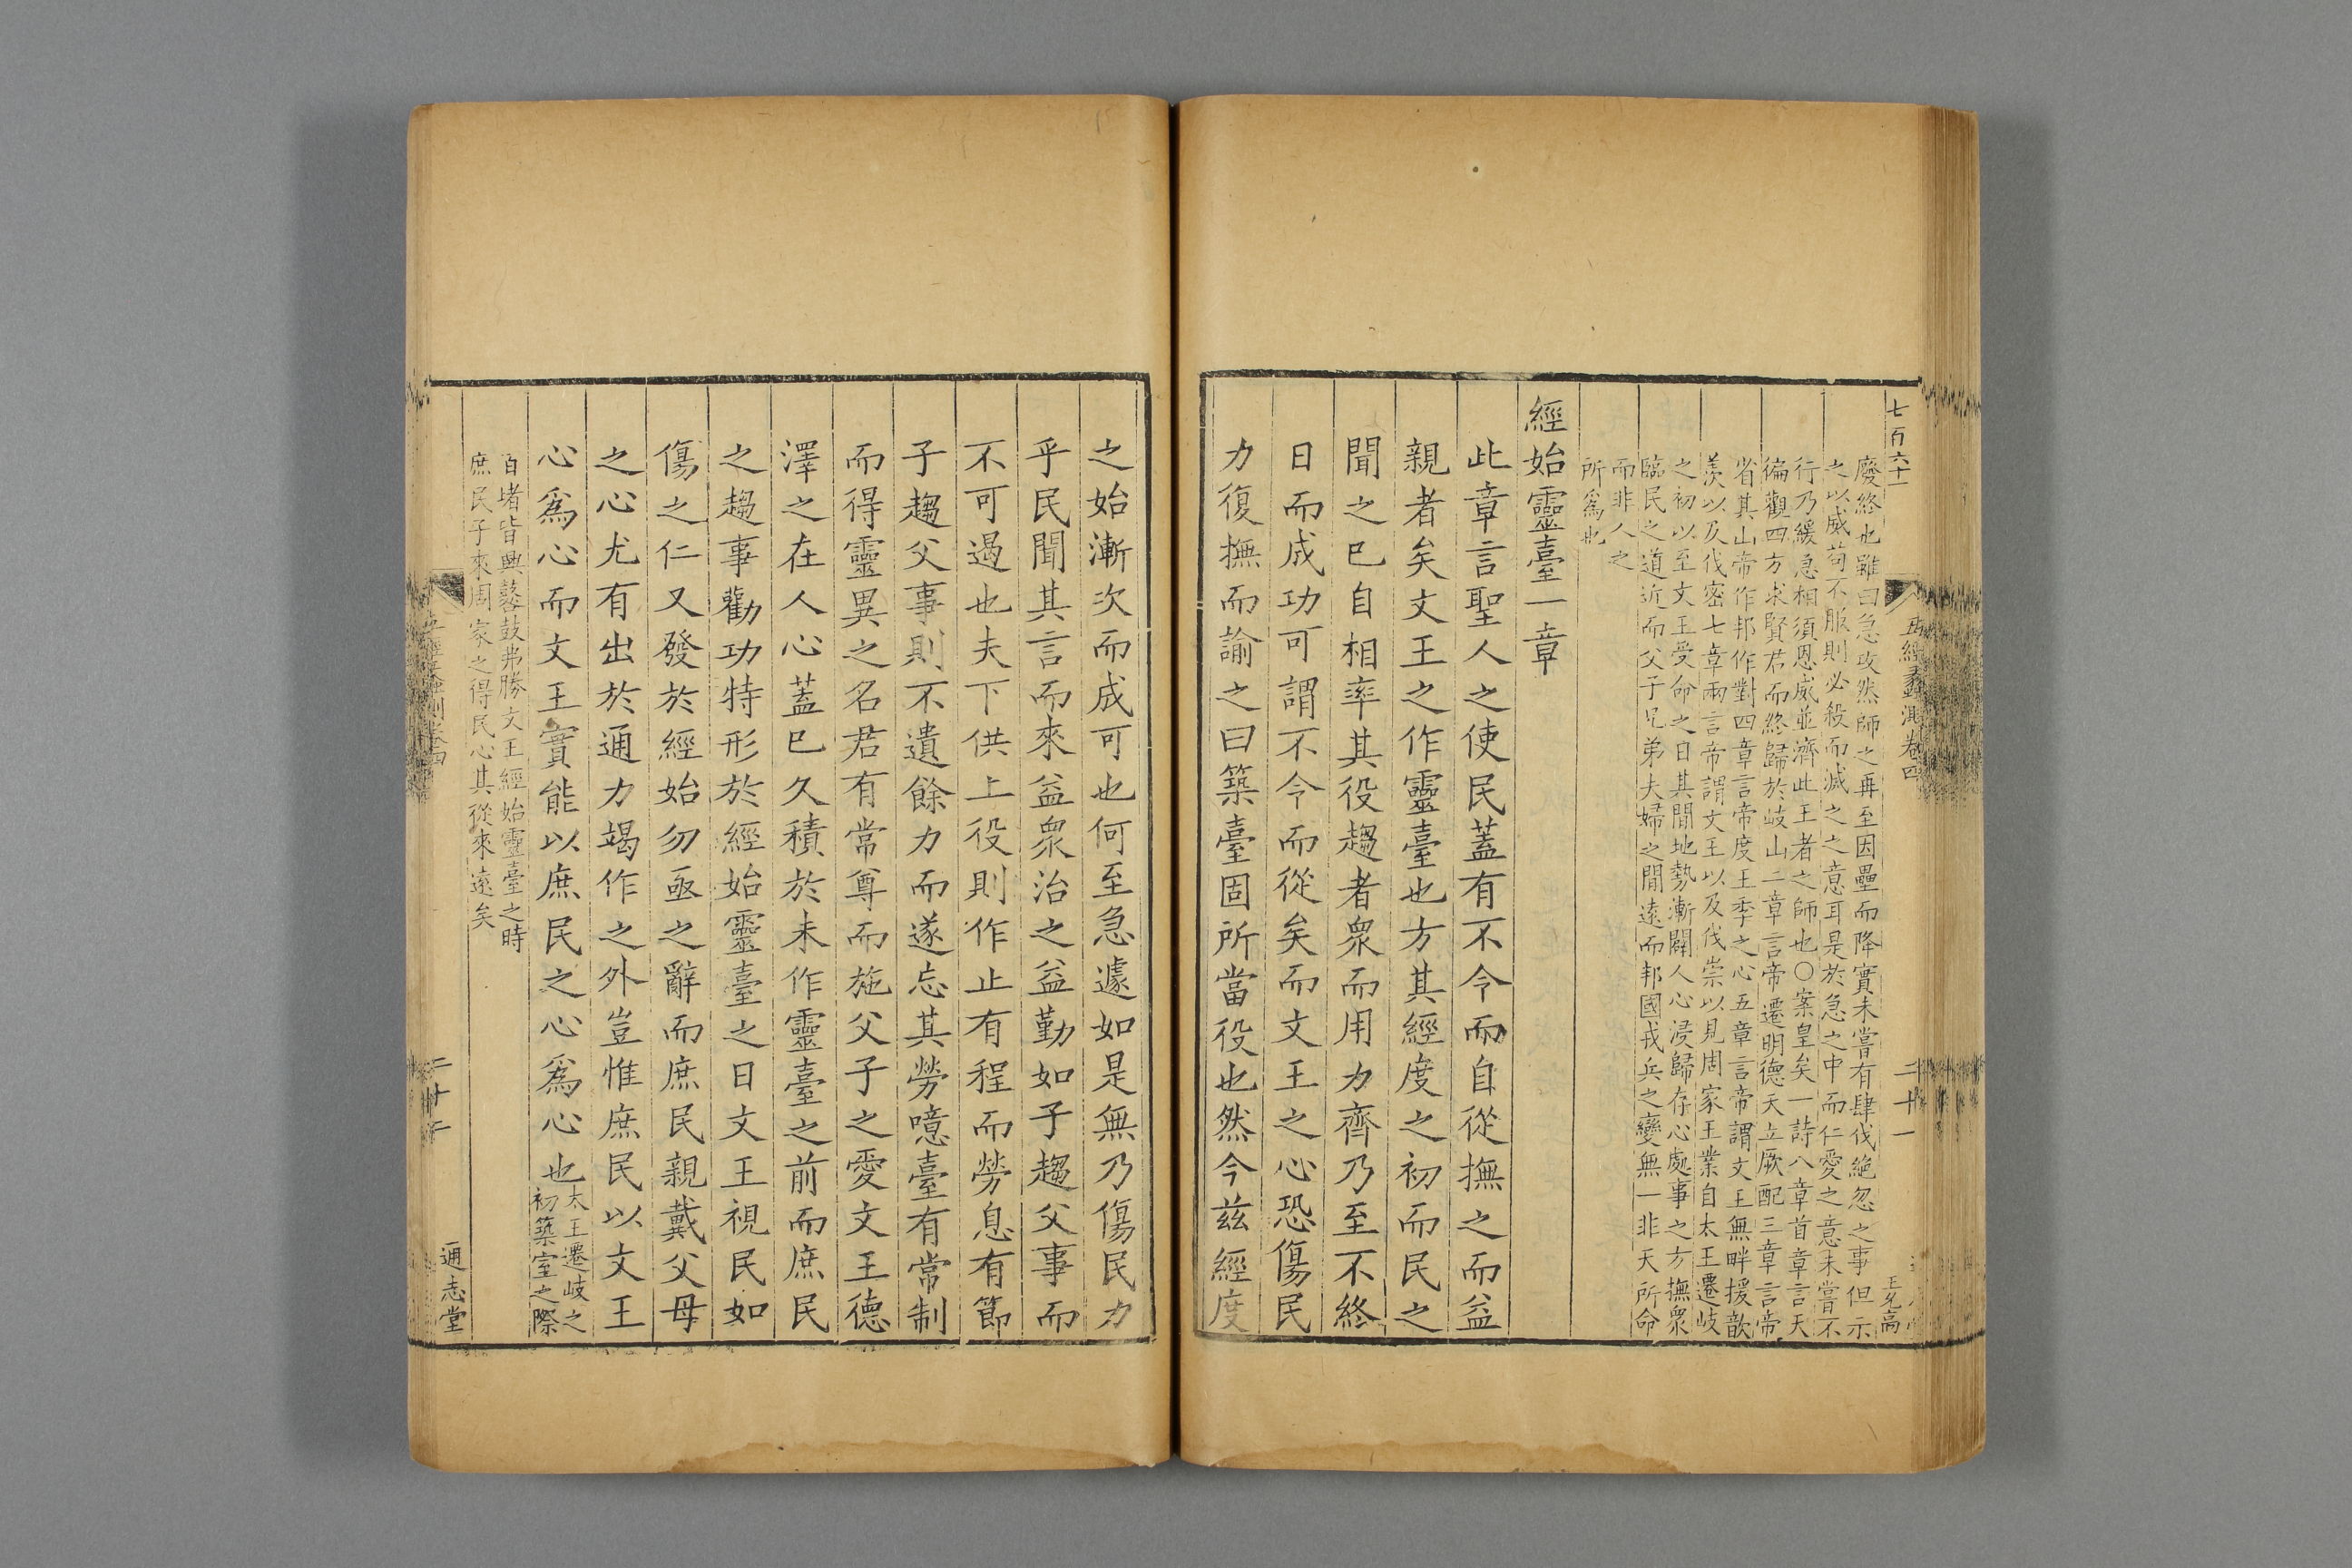 七百六十一
五經蠡測卷四
二十一
王允高
廢終也雖曰急攻然師之再至因壘而降實未嘗有肆伐絶忽之事但示
之以威苟不服則必殺而滅之之意耳是於急之中而仁愛之意未嘗不
行乃緩急相須恩威並濟此王者之師也〇案皇矣一詩八章首章言天
徧觀四方求賢君而終歸於岐山二章言帝遷明德天立厥配三章言帝
省其山帝作邦作對四章言帝度王季之心五章言帝謂文王無畔援歆
羡以及伐密七章兩言帝謂文王以及伐崇以見周家王業自太王遷岐
之初以至文王受命之日其間地勢漸闢人心浸歸存心處事之方撫衆
臨民之道近而父子兄弟夫婦之間遠而邦國戎兵之變無一非天所命
而非人之
所爲也
經始靈臺一章
此章言聖人之使民蓋有不令而自從撫之而益
親者矣文王之作靈臺也方其經度之初而民之
聞之已自相率其役趨者衆而用力齊乃至不終
日而成功可謂不令而從矣而文王之心恐傷民
力復撫而諭之曰築臺固所當役也然今茲經度
之始漸次而成可也何至急遽如是無乃傷民力
乎民聞其言而來益衆治之益勤如子趨父事而
不可遏也夫下供上役則作止有程而勞息有節
子趨父事則不遺餘力而遂忘其勞噫臺有常制
而得靈異之名君有常尊而施父子之愛文王德
澤之在人心蓋已久積於未作靈臺之前而庶民
之趨事勸功特形於經始靈臺之日文王視民如
傷之仁又發於經始勿亟之辭而庶民親戴父母
之心尤有出於逋力竭作之外豈惟庶民以文王
心爲心而文王實能以庶民之心爲心也太王遷岐之
初築室之際
百堵皆興鼛鼓弗勝文王經始靈臺之時
庶民子來周家之得民心其從來遠矣
二十二
通志堂